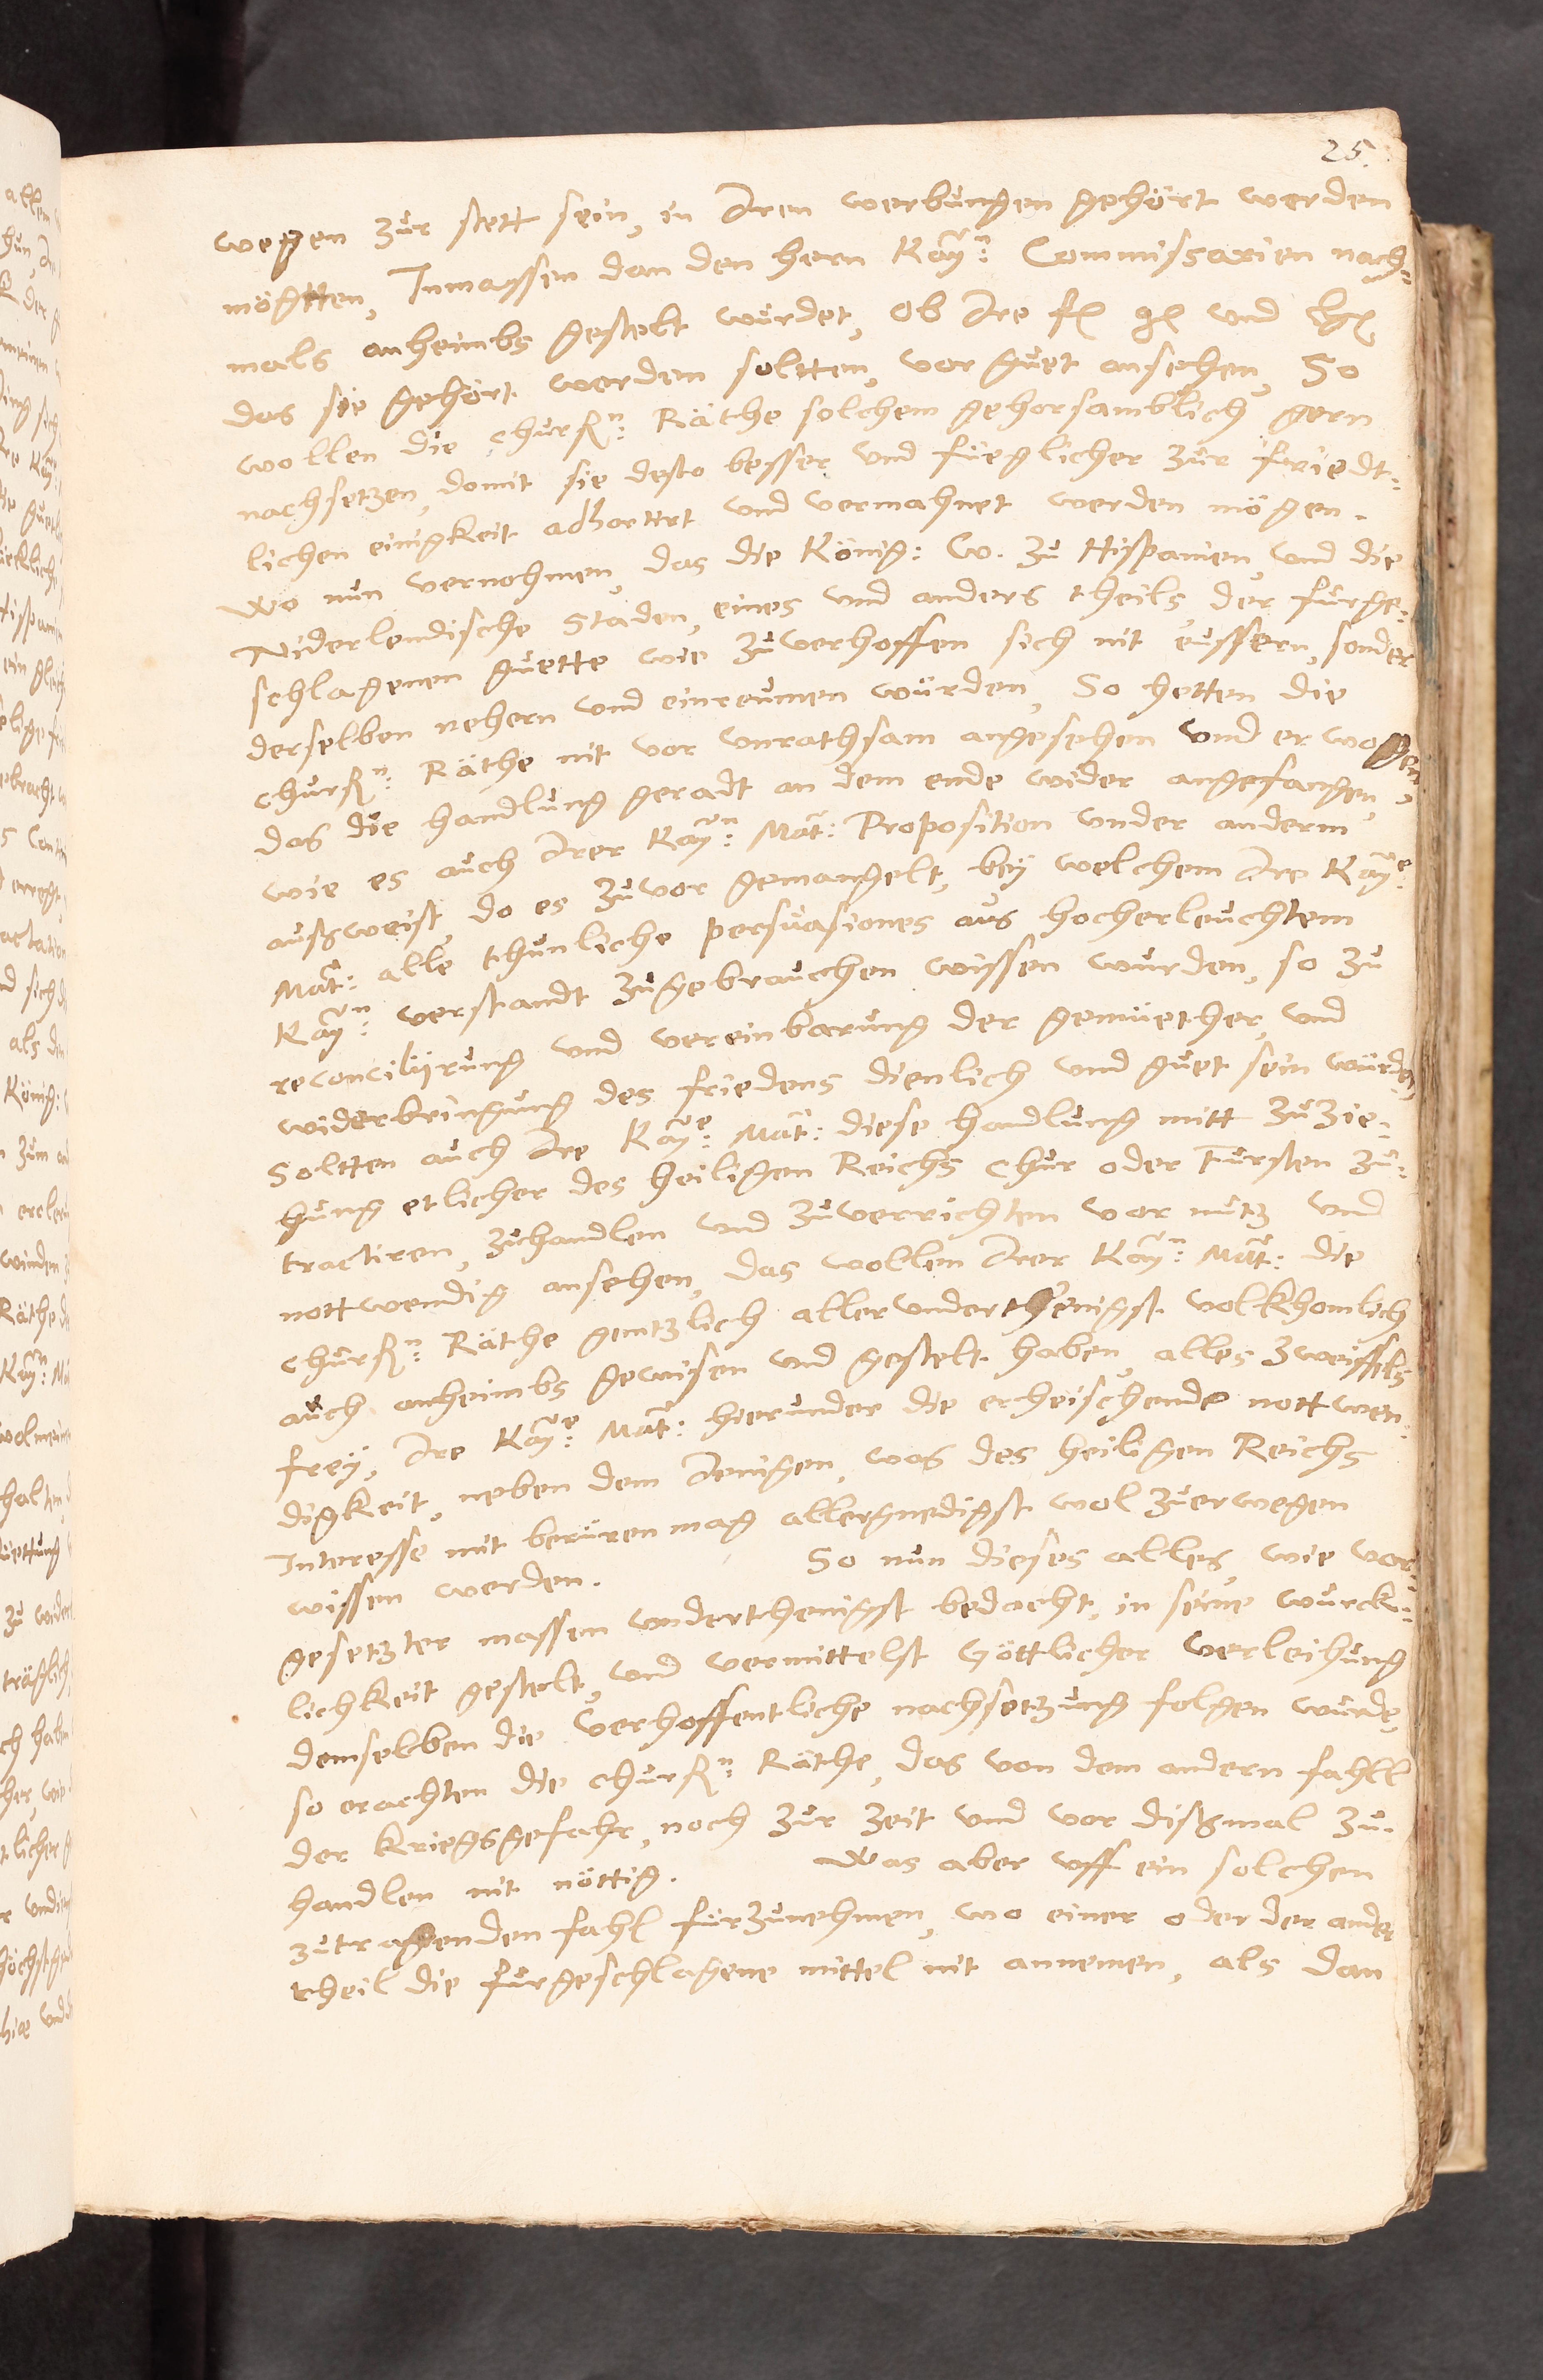 25.
wegen zur stett sein, in Iren werbungen gehört werden
mögtten, Inmassen dan den hern Kayn: Commissarien nach-
mals anheimbs gestelt würdet, Ob Ire fl gl und
das sie gehört werden soltten, vor guet ansehen, So
wollen die churfn: Räthe solchem gehorsamblich gern
nachsetzen, domit sie desto besser und füeglicher zur friedt-
lichen einigkeit adhortirt und vermahnet werden mögen.
Wo nun vernohmen, das die König: W. zu Hispanien, und die
Niderlendische Staden, eines und anders theils, der fürge-
schlagenen guette wie zuverhoffen sich nit eussern, sonder
derselben nehern und einreumen würden, So hetten die
churfn: Räthe nit vor unrathsam angesehen und erwogen,
das die handlung geradt an dem ende wider angefangen,
wie es auch Irer Kayn: Mat: Proposition under anderm
außweist, do es zuvor gemangelt, bey welchem Ire Kaye:
Mat: alle thunliche persuasiones aus hocherleuchtem
Kayn: verstandt zugebrauchen wissen wurden, so zu
reconciliirung und vereinbarung der gemüether, und
widerbringung des friedens dienlich und guet sein würden,
Soltten auch Ire Kaye: Mat: diese handlung mitt zuzie-
hung etlicher des heiligen Reichs Chur oder Fursten zu-
tractiren, zuhandlen und zuverrichten vor nutz und
nottwendig ansehen, das wollen Irer Kayn: Mat: die
churfn: Räthe gentzlich allerunderthenigst volkhomlich
auch anheimbs gewisen und gestelt haben, alles zweiffels
frey, Ire Kaye: Mat: hierunder die erheischende nottwen-
digkeit, neben dem Jenigen, was des heiligen Reichs
Interesse mit berüren mag allergnedigst wol zuerwegen
wissen werden. So nun dieses alles, wie vor-
gesetzter massen underthenigst bedacht, in seine würck-
lichkeit gestelt, und vermittelst Göttlicher verleihung
demselben die verhoffentliche nachsetzung folgen würde,
so erachten die churfn: Räthe, das von dem andern fahll
der kriegsgefahr, noch zur zeit und vor dißmal zu-
handlen nit nöttig. Was aber uff ein solchen
zutragenden fahl fürzunehmen, wo einer oder der ander
theil die fürgeschlagene mittel nit annemen, als dan